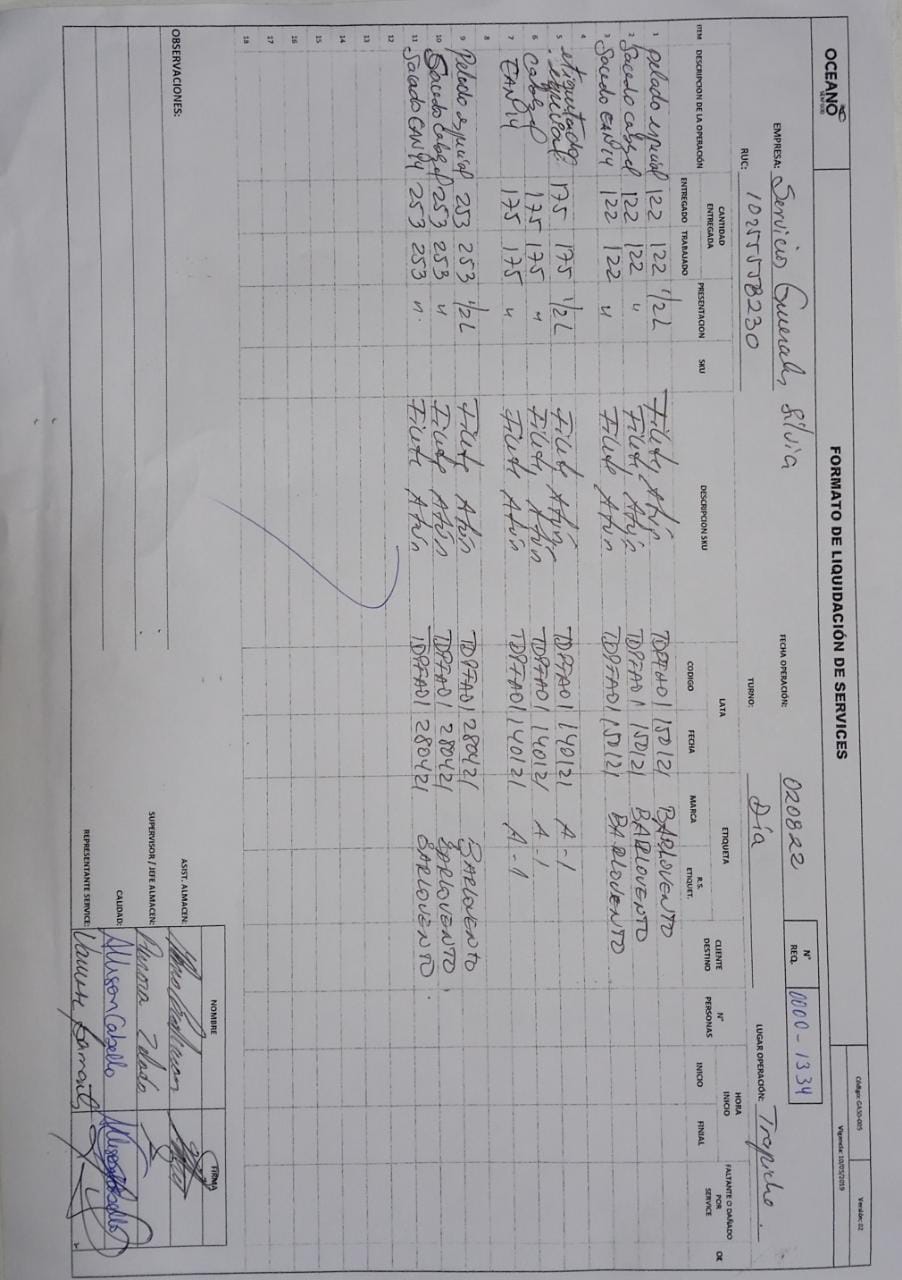 OCEANO
SEAFOOD
FORMATO DE LIQUIDACIÓN DE SERVICES
Código: GASO-005 Versión: 02
Vigencia: 10/05/2019
EMPRESA: Servicios Generales Silvia
FECHA OPERACIÓN: 020822
N° REQ. 0000-1334
LUGAR OPERACIÓN:
RUC: 10255558230
TURNO: Día
ITEM DESCRIPCION DE LA OPERACIÓN CANTIDAD ENTREGADA ENTREGADO TRABAJADO PRESENTACION SKU DESCRIPCION SKU LATA CODIGO FECHA ETIQUETA MARCA R.S. ETIQUET. CLIENTE DESTINO N° PERSONAS HORA INICIO INICIO FINIAL FALTANTE O DAÑADO POR SERVICE OK
1 pelado especial 122 122 1/2 L Filete Atún TDPFA01 150121 BARLOVENTO
2 Sacado cabezal 122 122 " Filete Atún TDPFA01 150121 BARLOVENTO
3 Sacado EAN14 122 122 " Filete Atún TDPFA01 150121 BARLOVENTO
4
5 etiquetado especial 175 175 1/2 L Filete Atún TDPFA01 140121 A-1
6 cabezal 175 175 " Filete Atún TDPFA01 140121 A-1
7 EAN14 175 175 " Filete Atún TDPFA01 140121 A-1
8
9 Pelado especial 253 253 1/2 L Filete Atún TDPFA01 280421 BARLOVENTO
10 Sacado Cabezal 253 253 " Filete Atún TDPFA01 280421 BARLOVENTO
11 Sacado EAN14 253 253 " Filete Atún TDPFA01 280421 BARLOVENTO
12
13
14
15
16
17
18
OBSERVACIONES:
NOMBRE FIRMA
ASIST. ALMACEN:
SUPERVISOR / JEFE ALMACEN:
CALIDAD: Allison Cabello
REPRESENTANTE SERVICE: